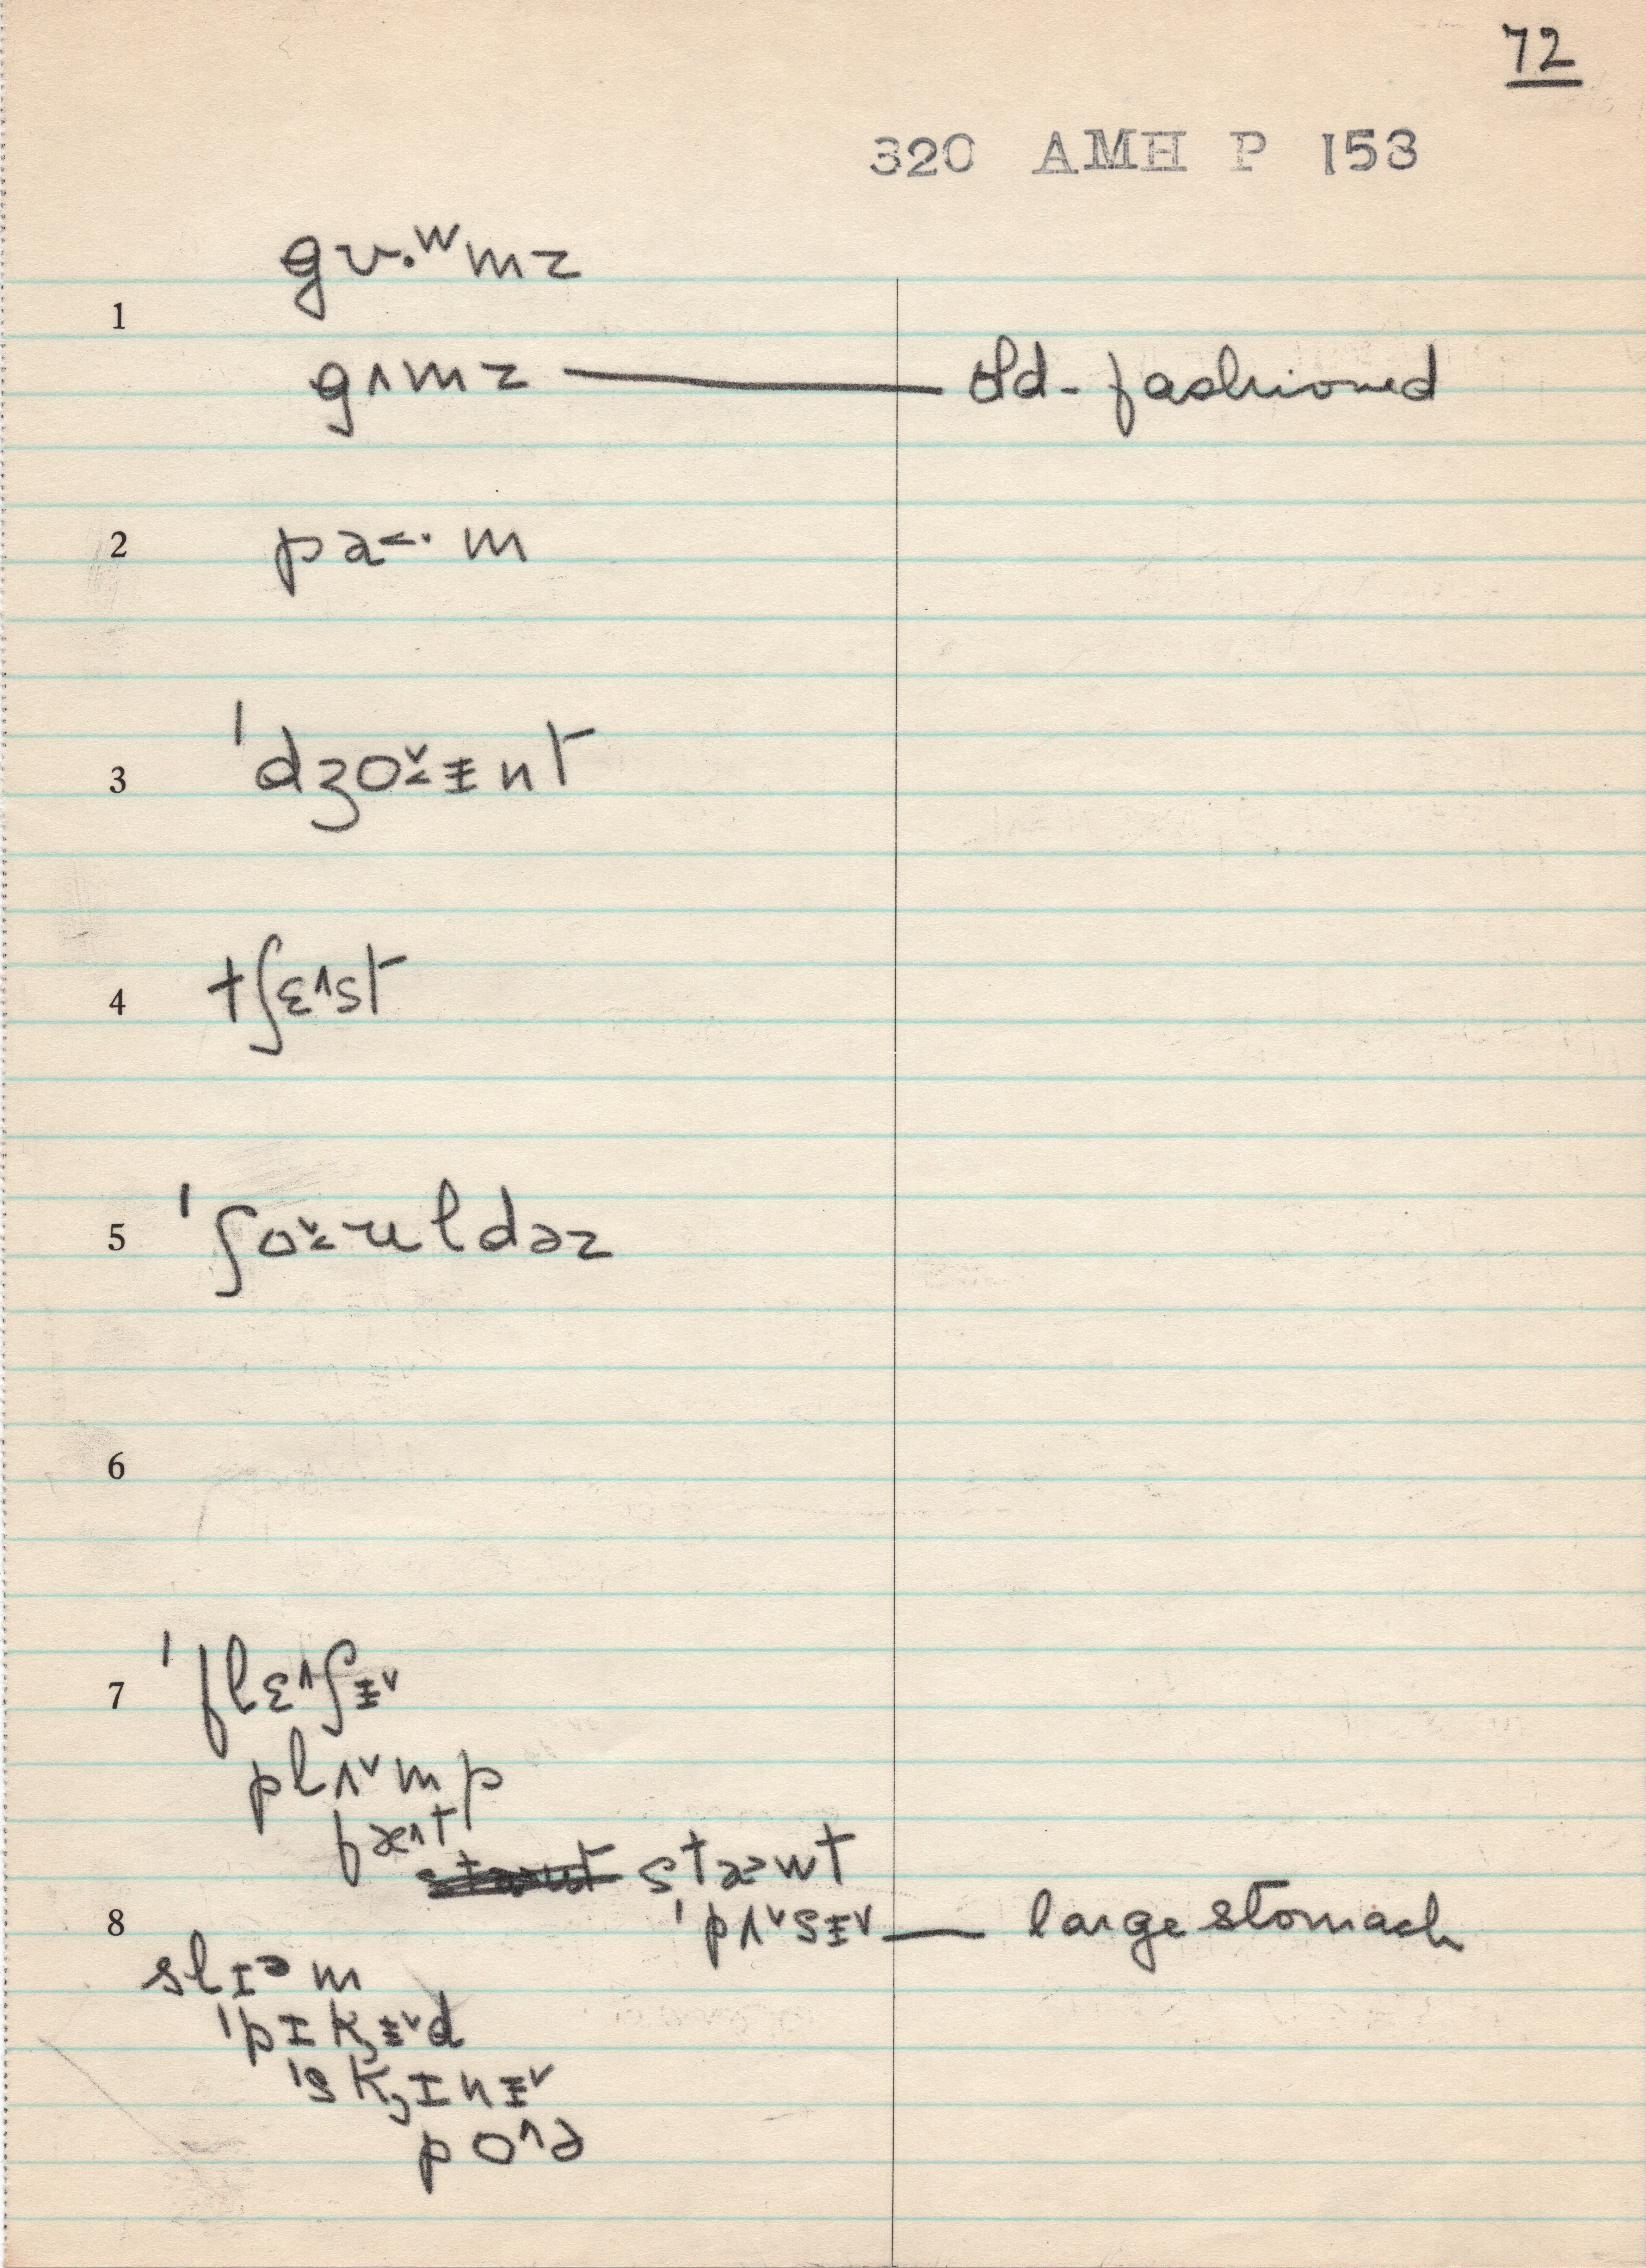 72
320 AMH P 153
gʋ·ʷmz
1
gʌmz — old-fashioned
2 pa˂· m
3 ˈdʒo˅˂ᵻnt
4 tʃɛ˄st
5 ˈʃo˅˂ʊldəz
6
7 ˈflɛ˄ʃᵻ˅
plʌ˅mp
fæ˄t
stæ˃wt
8 ˈpʌ˅sᵻ˅ — large stomach
slɪᵊm
ˈpɪk̡ᵻ˅d
ˈsk̡ɪnᵻ˅
po˄ə